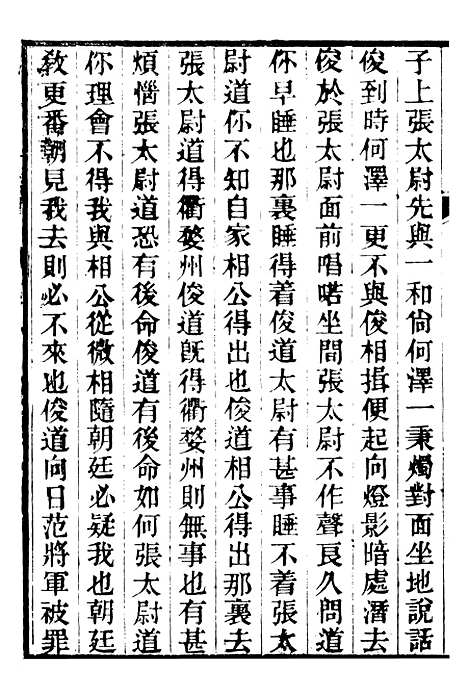 子上張太尉先與一和尙何澤一秉燭對面坐地說話
俊到時何澤一更不與俊相揖便起向燈影暗處潛去
俊於張太尉面前唱喏坐間張太尉不作聲良久問道
你早睡也那裏睡得着俊道太尉有甚事睡不着張太
尉道你不知自家相公得出也俊道相公得出那裏去
張太尉道得衢婺州俊道旣得衢婺州則無事也有甚
煩惱張太尉道恐有後命俊道有後命如何張太尉道
你理會不得我與相公從微相隨朝廷必疑我也朝廷
敎更番朝見我去則必不來也俊道向日范將軍被罪